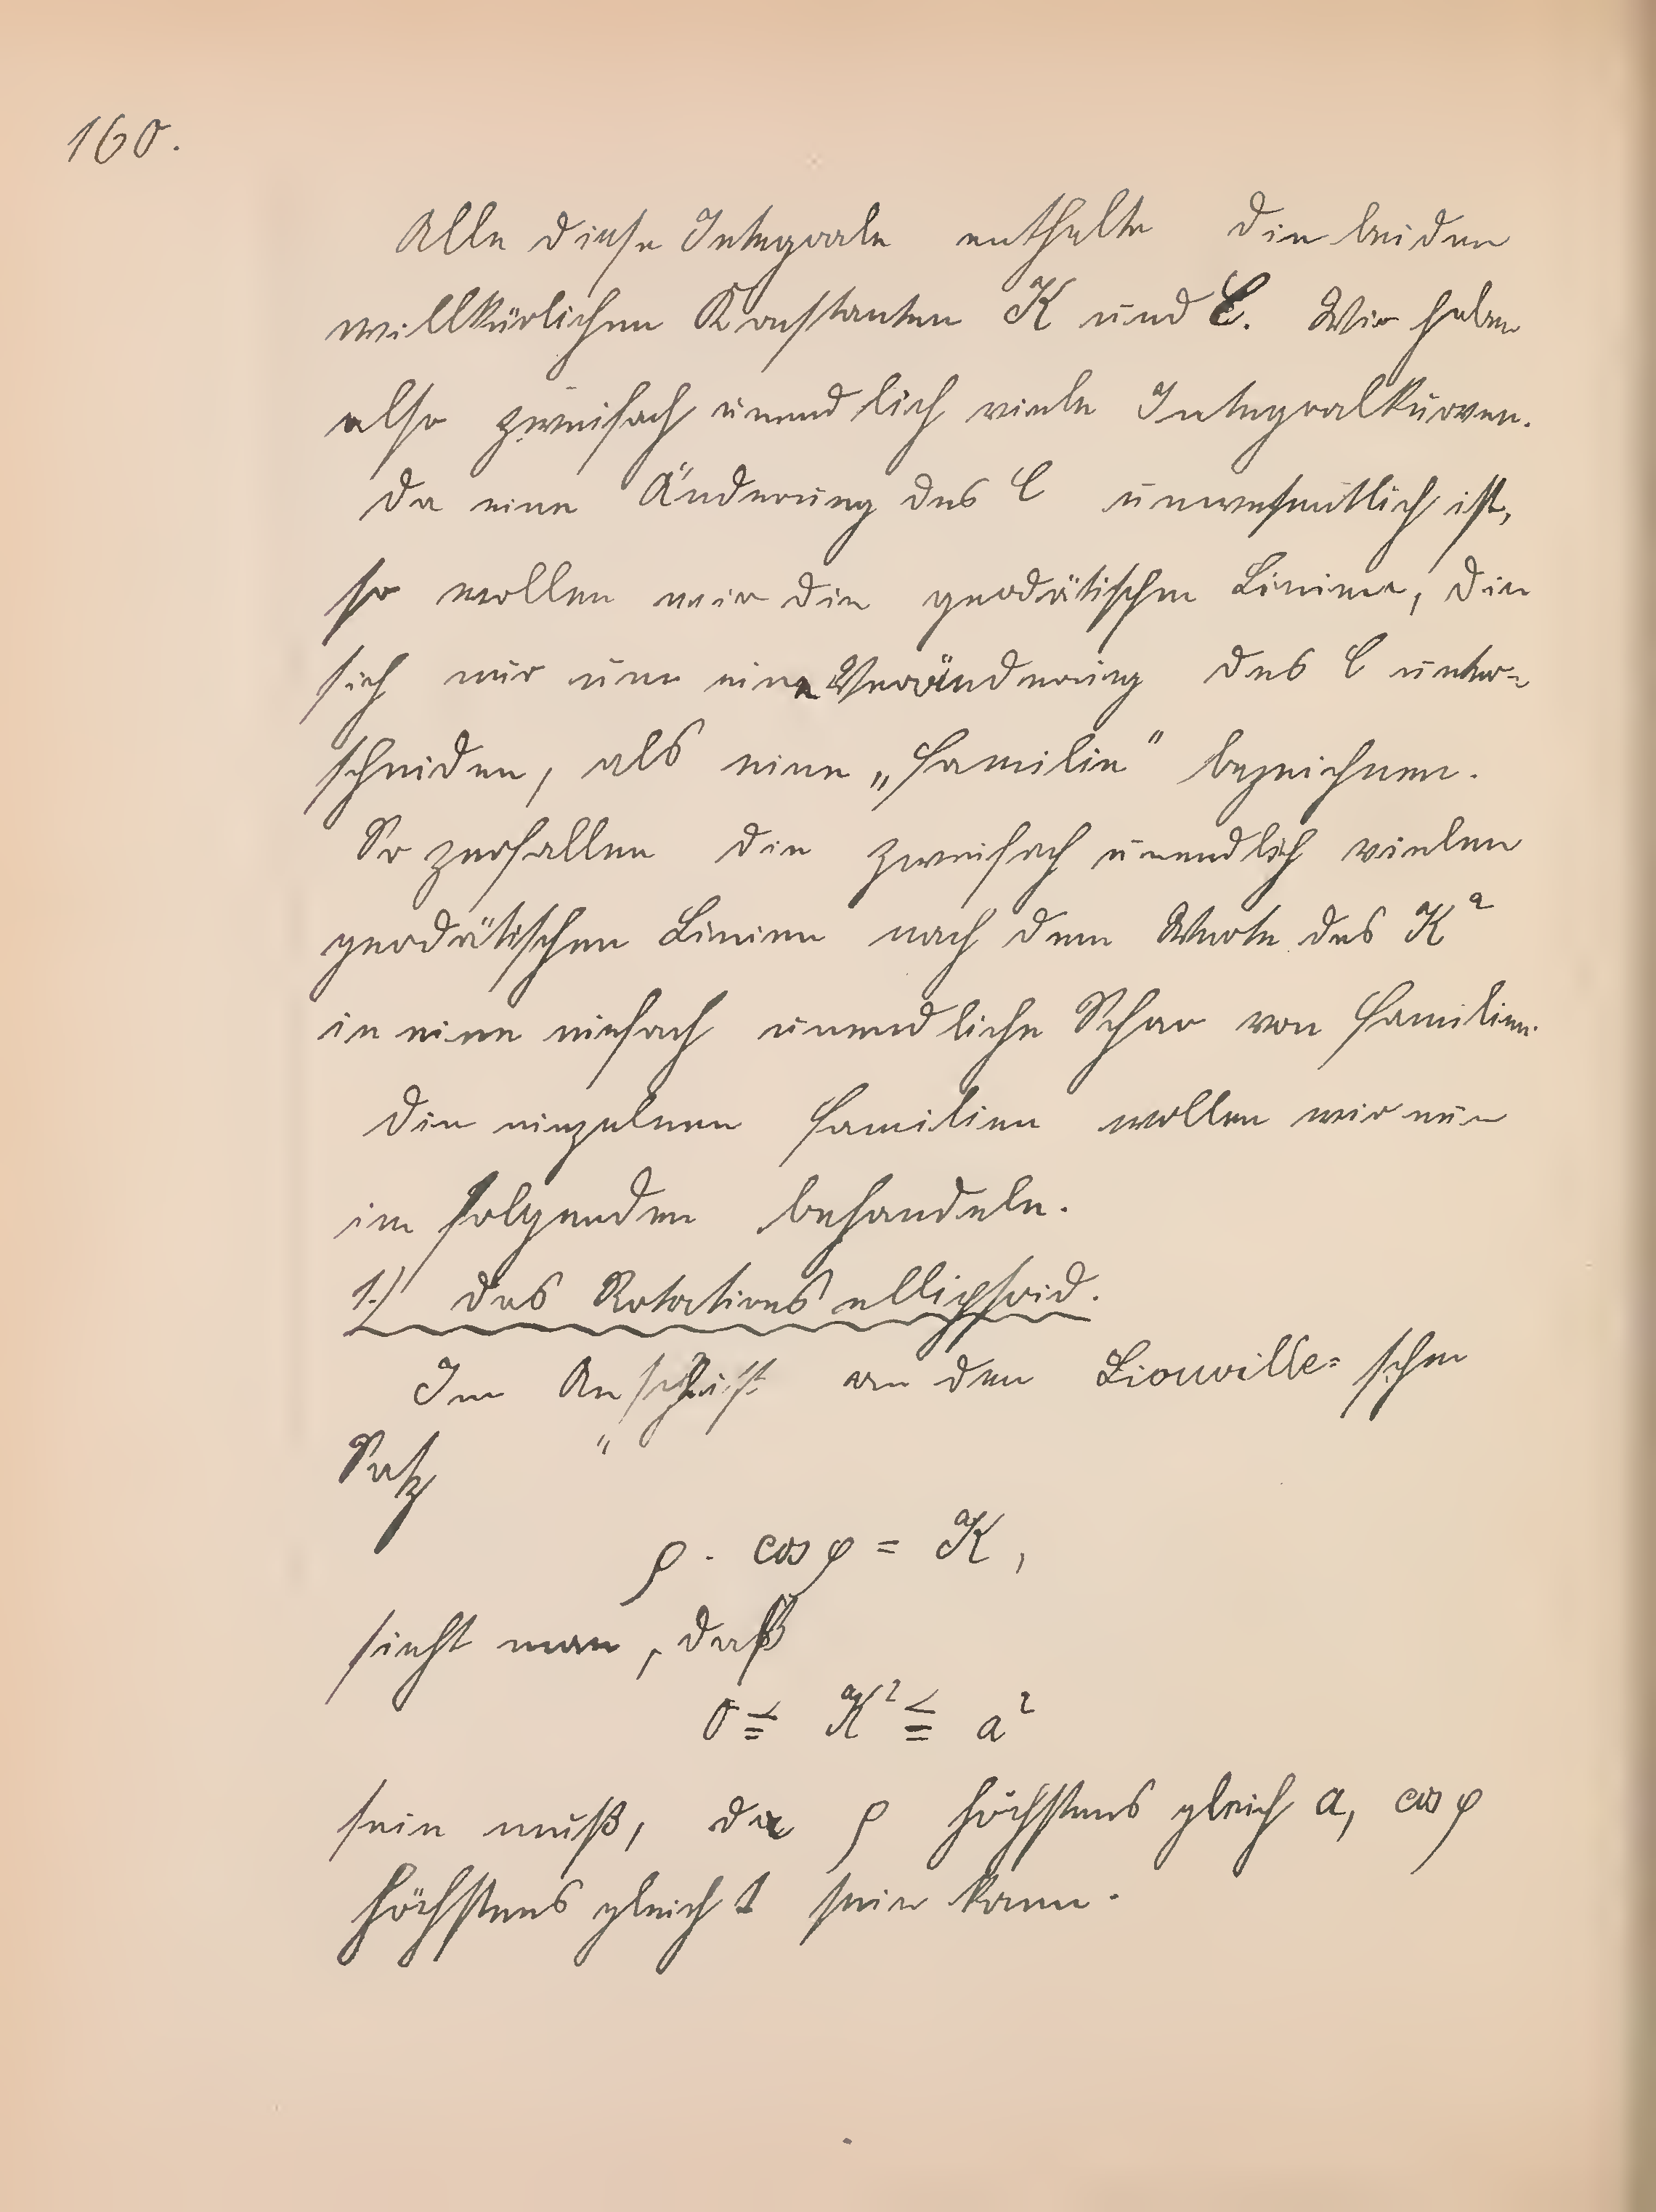 160.
Alle diese Integrale enthalte die beiden
willkürlichen Konstanten K und C. Wir haben
also zweifach unendlich viele Integralkurven.
Da eine Änderung des C unwesentlich ist,
so wollen wir die geodätischen Linien, die
sich nur um eine Veränderung des C unter-
scheiden, als eine „Familie" bezeichnen.
So zerfallen die zweifach unendlich vielen
geodätischen Linien nach dem Werte des K²
in eine einfach unendliche Schar von Familien.
Die einzelnen Familien wollen wir nun
im folgenden behandeln.
1.) Das Rotationsellipsoid.
Im Anschluß an den Liouville-schen
Satz
ρ · cos φ = K,
sieht man, daß
0 ≦ K² ≦ a²
sein muß, da ρ höchstens gleich a, cos φ
höchstens gleich 1 sein kann.